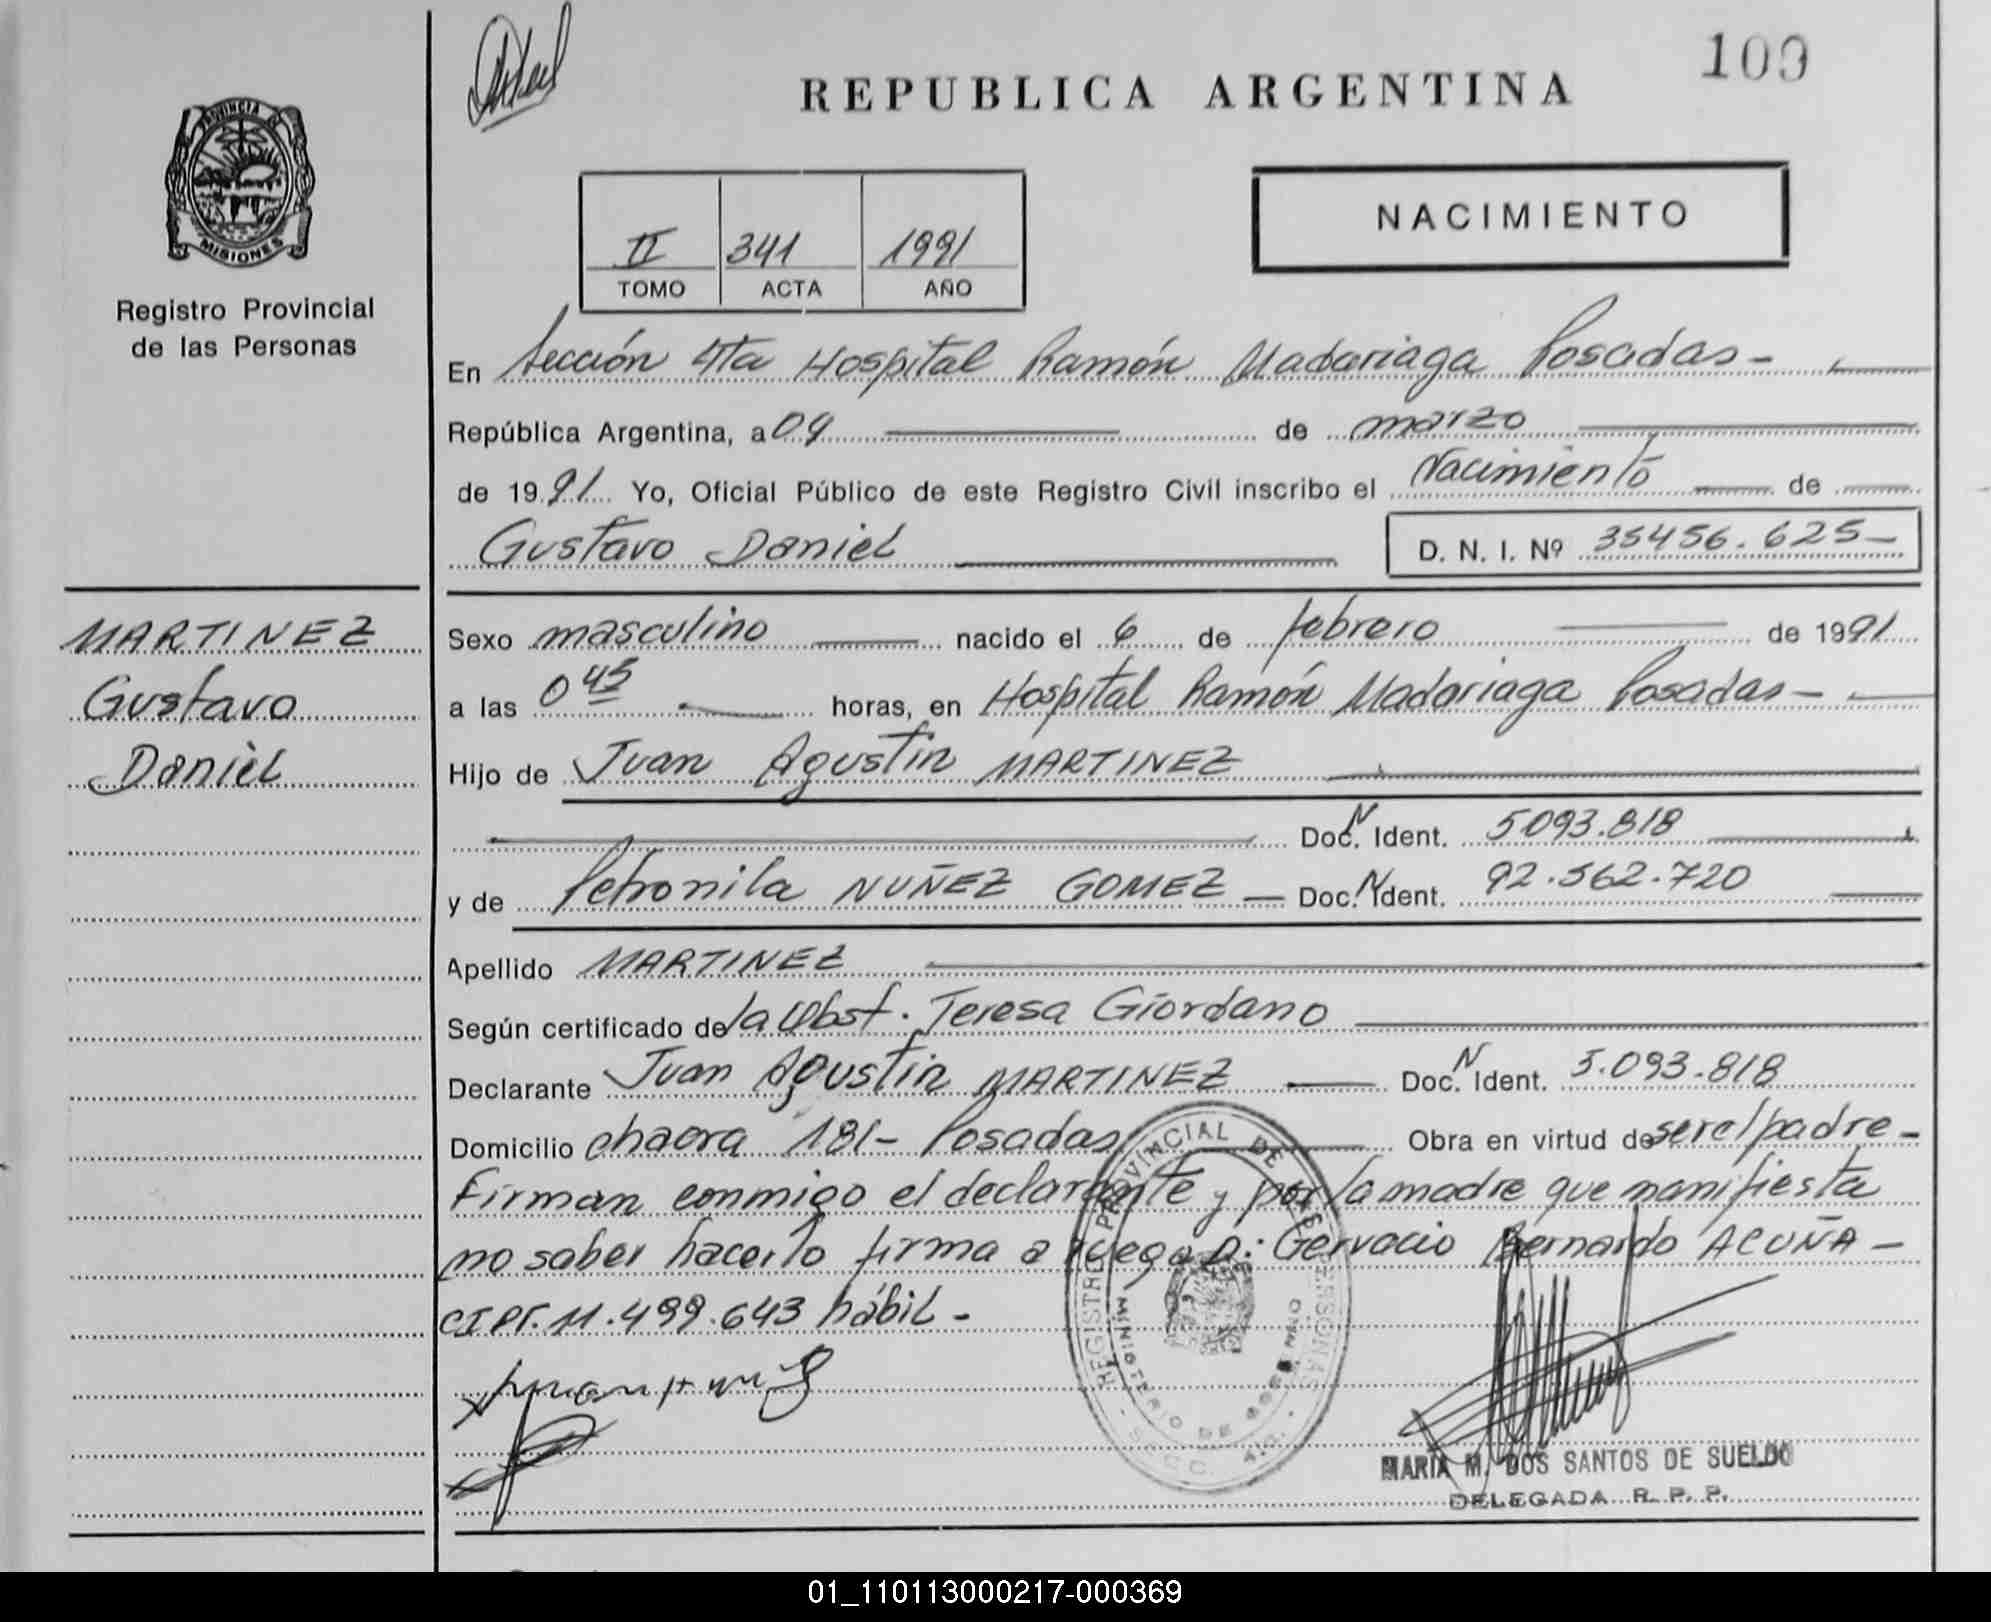 109
REPUBLICA ARGENTINA
PROVINCIA DE
MISIONES
Registro Provincial
de las Personas
NACIMIENTO
II 341 1991
TOMO ACTA AÑO
En Sección 4ta Hospital Ramón Madariaga Posadas -
República Argentina, a 04 de marzo
de 1991 Yo, Oficial Público de este Registro Civil inscribo el Nacimiento de
Gustavo Daniel D. N. I. Nº 35456.625-
MARTINEZ
Gustavo
Daniel
Sexo masculino nacido el 6 de febrero de 1991
a las 0 45 horas, en Hospital Ramón Madariaga Posadas -
Hijo de Juan Agustín MARTINEZ
Doc. N Ident. 5093.818
y de Petronila NUÑEZ GOMEZ - Doc. N Ident. 92.562.720
Apellido MARTINEZ
Según certificado de la Obst. Teresa Giordano
Declarante Juan Agustín MARTINEZ Doc. N Ident. 5.093.818
Domicilio chacra 181- Posadas Obra en virtud de ser el padre -
Firman conmigo el declarante y por la madre que manifiesta
no saber hacerlo firma a ruego D: Gervacio Bernardo ACUÑA -
CIPr. 11.499.643 hábil -
REGISTRO PROVINCIAL DE LAS PERSONAS
MINISTERIO DE GOBIERNO
MARIA M. DOS SANTOS DE SUELDO
DELEGADA R. P. P.
01_110113000217-000369